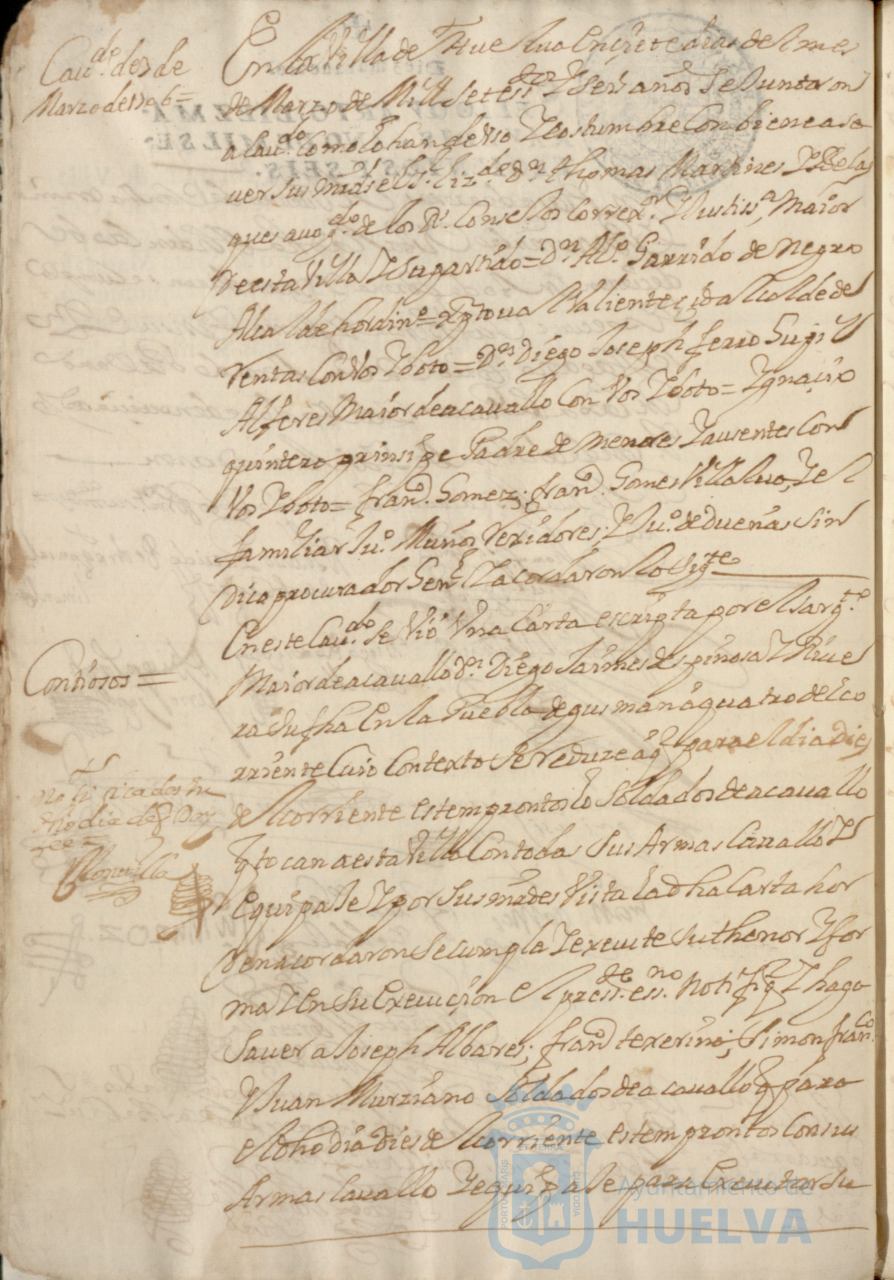 Cav.do de 7 de
Marzo de 1706=
En la Villa de Huelva en siete dias del mes
de Marzo de Mill Setes.os Y Seis años Se Juntaron
a Cav.do como lo han de Vso Y costumbre Conbiene a sa
ver sus mrds el S.r Liz.do d.n thomas Martines Y Delas
ques avog.do de los R.s Consejos Correx.or Y Justis.a Maior
de esta Villa Y Su partido= D.n Al.o Garrido de negro
Alcalde hordin.o= Valiente Alcalde de
Rentas con Vos Y boto= D.n Diego Joseph ferro
Alferes Maior de a cavallo Con Vos Y boto= Ygnaçio
quintero prinsipe Padre de menores Y ausentes Con
Vos Y boto= fran.co Gomez; fran.co Gomes Villalva, Y el
familiar Ju.o Muños Rexidores; Y Ju.o de Dueñas Sin
dico procurador Gen.l Y acordaron lo Sig.te
Contiosos=
En este Cav.do Se Vio Vna Carta escripta por el Sarg.to
Maior de a cavallo D.n Diego Jaimes despinosa Y Rive
ra Su fha En la Puebla de gusman a quatro del co
rriente Cuio Contexto Se reduze a q.e para el dia Dies
del corriente estem prontos lo Soldados de a cavallo
q.e tocan a esta Villa Con todas Sus Armas Cavallo Y
Equipaje Y por Sus mrdes Vista La dha Carta hor
den acordaron Se cumpla Y execute Su thenor Y for
ma Y En Su Execuçion el press.te ess.no Notifiq.e Y haga
Saver a Joseph Albares; fran.co texerino; Simon fran.co
Y Juan Murziano Soldados de a cavallo q.e para
el dho dia dies del corriente estem prontos Con sus
Armas Cavallo Y equipaje para Executar Su
Ayuntamiento de
HUELVA